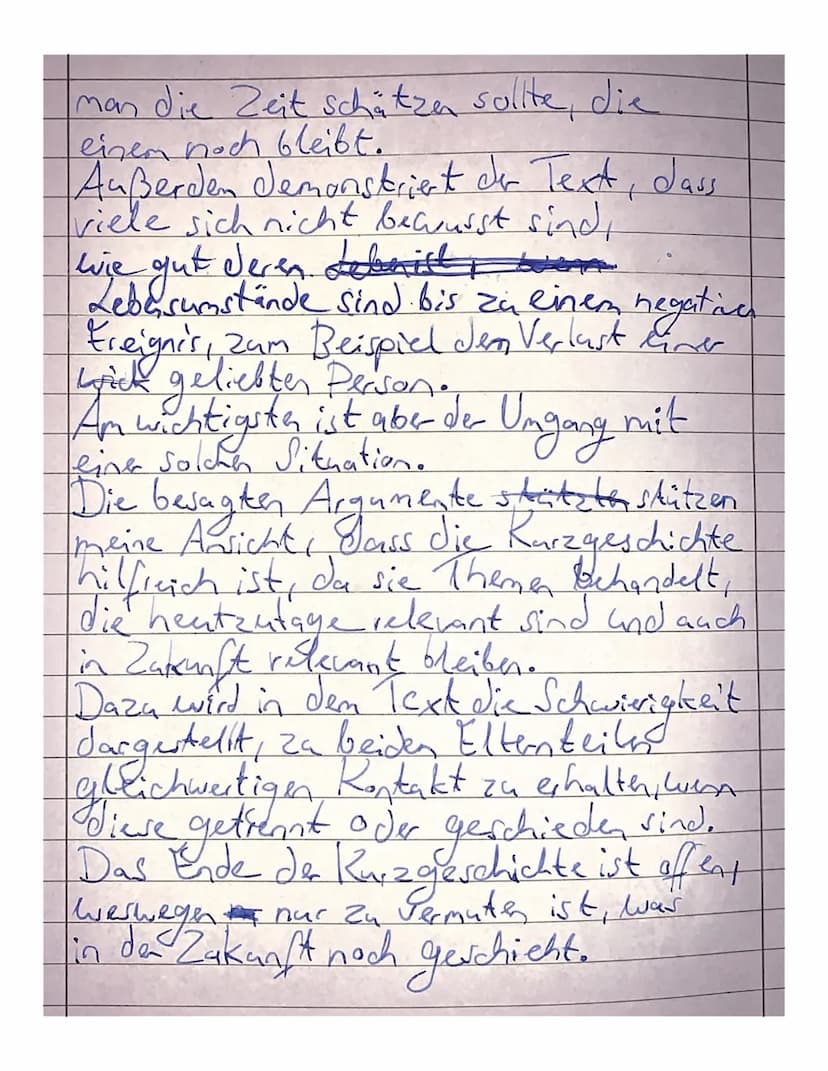 man die Zeit schätzen sollte, die
einem noch bleibt.
Außerdem demonstriert der Text, dass
viele sich nicht bewusst sind,
wie gut deren
Lebensumstände sind bis zu einem negativen
Ereignis, zum Beispiel dem Verlust einer
geliebten Person.
Am wichtigsten ist aber der Umgang mit
einer solchen Situation.
Die besagten Argumente stützten stützen
meine Ansicht, dass die Kurzgeschichte
hilfreich ist, da sie Themen behandelt,
die heutzutage relevant sind und auch
in Zukunft relevant bleiben.
Dazu wird in dem Text die Schwierigkeit
dargestellt, zu beiden Elternteilen
gleichwertigen Kontakt zu erhalten, wenn
diese getrennt oder geschieden sind.
Das Ende der Kurzgeschichte ist offen,
weswegen nur zu vermuten ist, was
in der Zukunft noch geschieht.